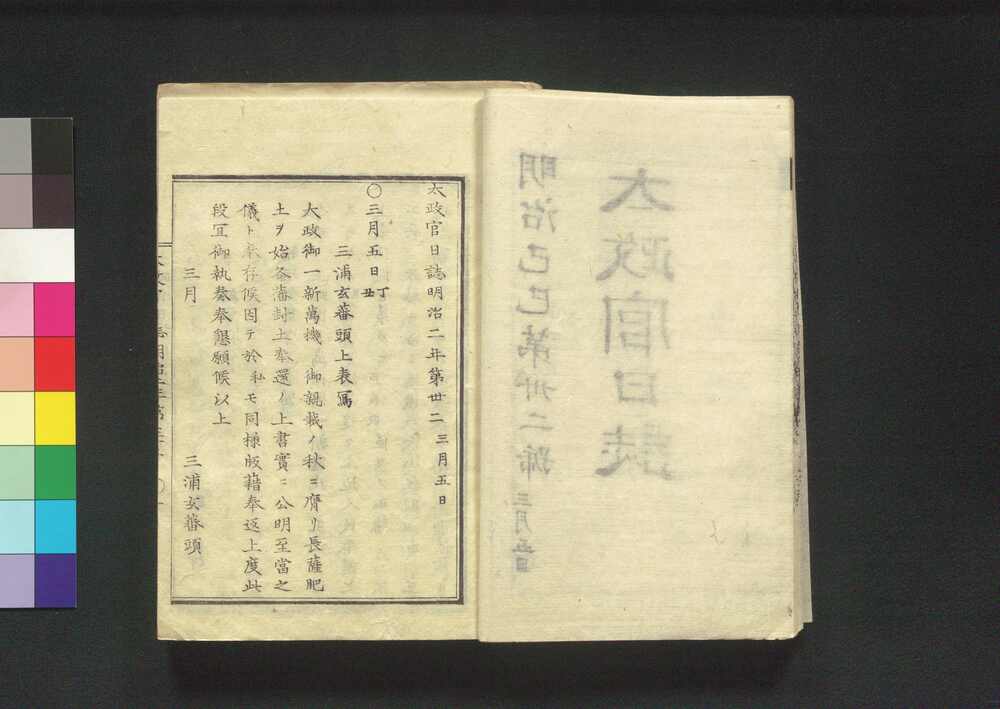 太政官日誌
明治己巳第卅二號
三月五日
太政官日誌明治二年第廿二 三月五日
〇三月五日丁丑
三浦玄蕃頭上表寫
大政御一新萬機御親裁ノ秋ニ膺リ長薩肥
土ヲ始各藩封土奉還ノ上書實ニ公明至當之
儀ト奉存候因テ於私モ同様版籍奉返上度此
段宜御執奏奉懇願候以上
三月
三浦玄蕃頭